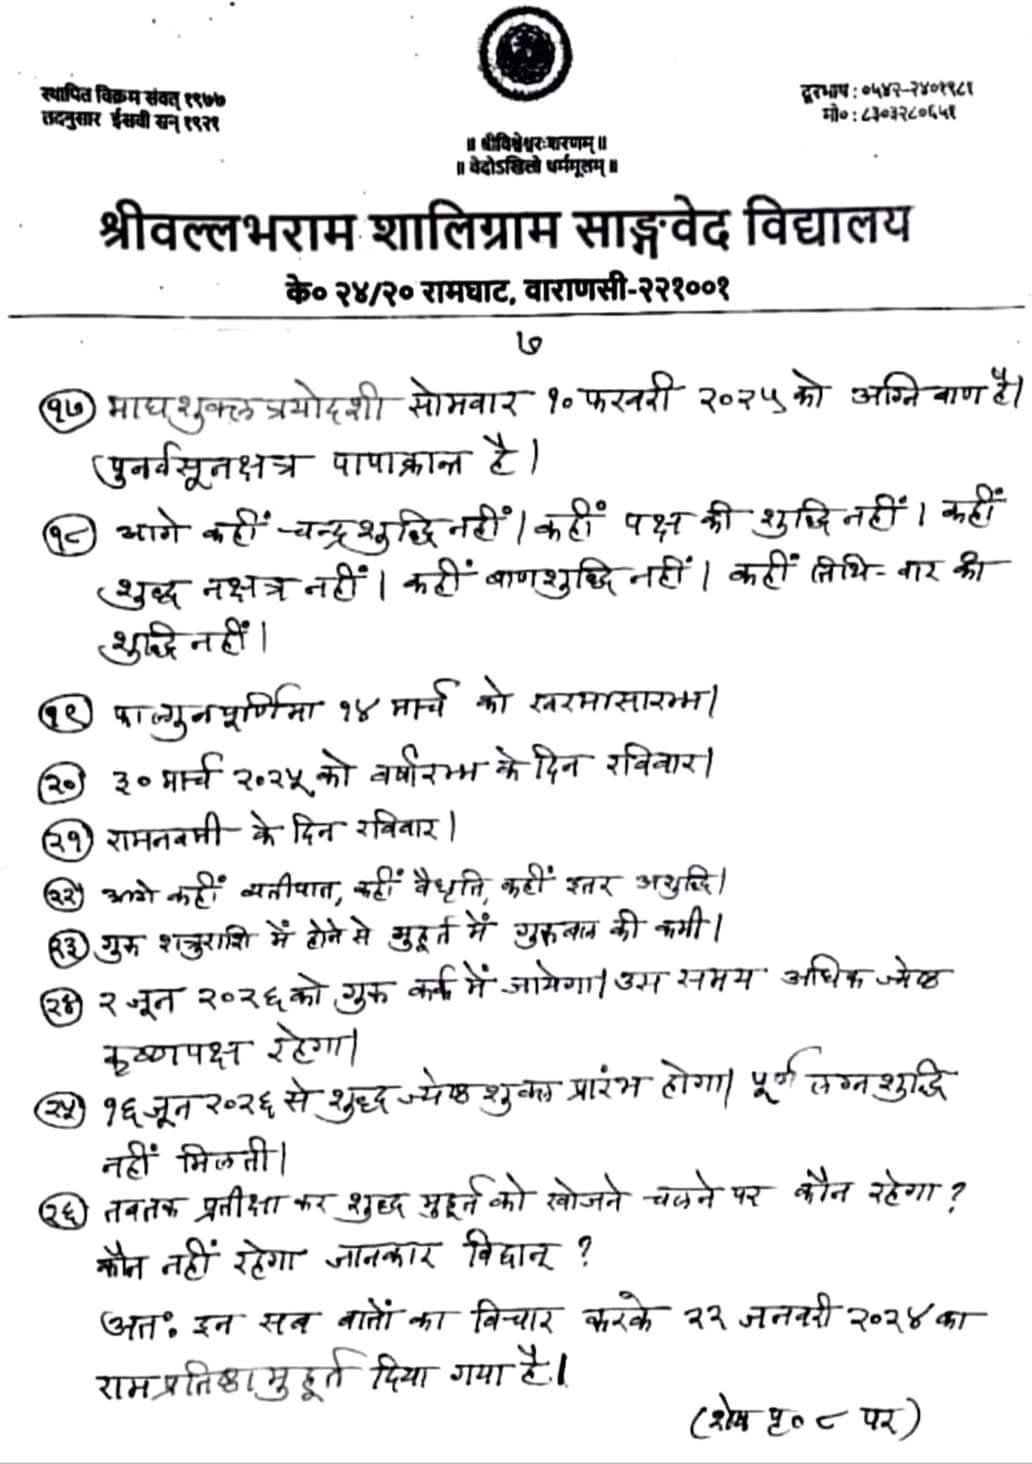 स्थापित विक्रम संवत् १९७७
तदनुसार ईसवी सन् १९२१
दूरभाष : ०५४२-२४०१९८१
मो० : ८३०३२८०६५१
॥ श्रीविश्वेश्वरःशरणम् ॥
॥ वेदोऽखिलो धर्ममूलम् ॥
श्रीवल्लभराम शालिग्राम साङ्गवेद विद्यालय
के० २४/२० रामघाट, वाराणसी-२२१००१
७
(१७) माघशुक्ल त्रयोदशी सोमवार १० फरवरी २०२५ को अग्नि बाण है।
पुनर्वसूनक्षत्र पापाक्रान्त है।
(१८) आगे कहीं चन्द्रशुद्धि नहीं। कहीं पक्ष की शुद्धि नहीं। कहीं
शुद्ध नक्षत्र नहीं। कहीं बाणशुद्धि नहीं। कहीं तिथि-वार की
शुद्धि नहीं।
(१९) फाल्गुनपूर्णिमा १४ मार्च को खरमासारम्भ।
(२०) ३० मार्च २०२५ को वर्षारम्भ के दिन रविवार।
(२१) रामनवमी के दिन रविवार।
(२२) आगे कहीं व्यतीपात, कहीं वैधृति, कहीं इतर अशुद्धि।
(२३) गुरु शत्रुराशि में होने से मुहूर्त में गुरुबल की कमी।
(२४) २ जून २०२६ को गुरु कर्क में जायेगा। उस समय अधिक ज्येष्ठ
कृष्णपक्ष रहेगा।
(२५) १६ जून २०२६ से शुद्ध ज्येष्ठ शुक्ल प्रारंभ होगा। पूर्ण लग्नशुद्धि
नहीं मिलती।
(२६) तबतक प्रतीक्षा कर शुद्ध मुहूर्त को खोजने चलने पर कौन रहेगा ?
कौन नहीं रहेगा जानकार विद्वान् ?
अतः इन सब बातों का विचार करके २२ जनवरी २०२४ का
रामप्रतिष्ठा मुहूर्त दिया गया है।
(शेष पृ० ८ पर)